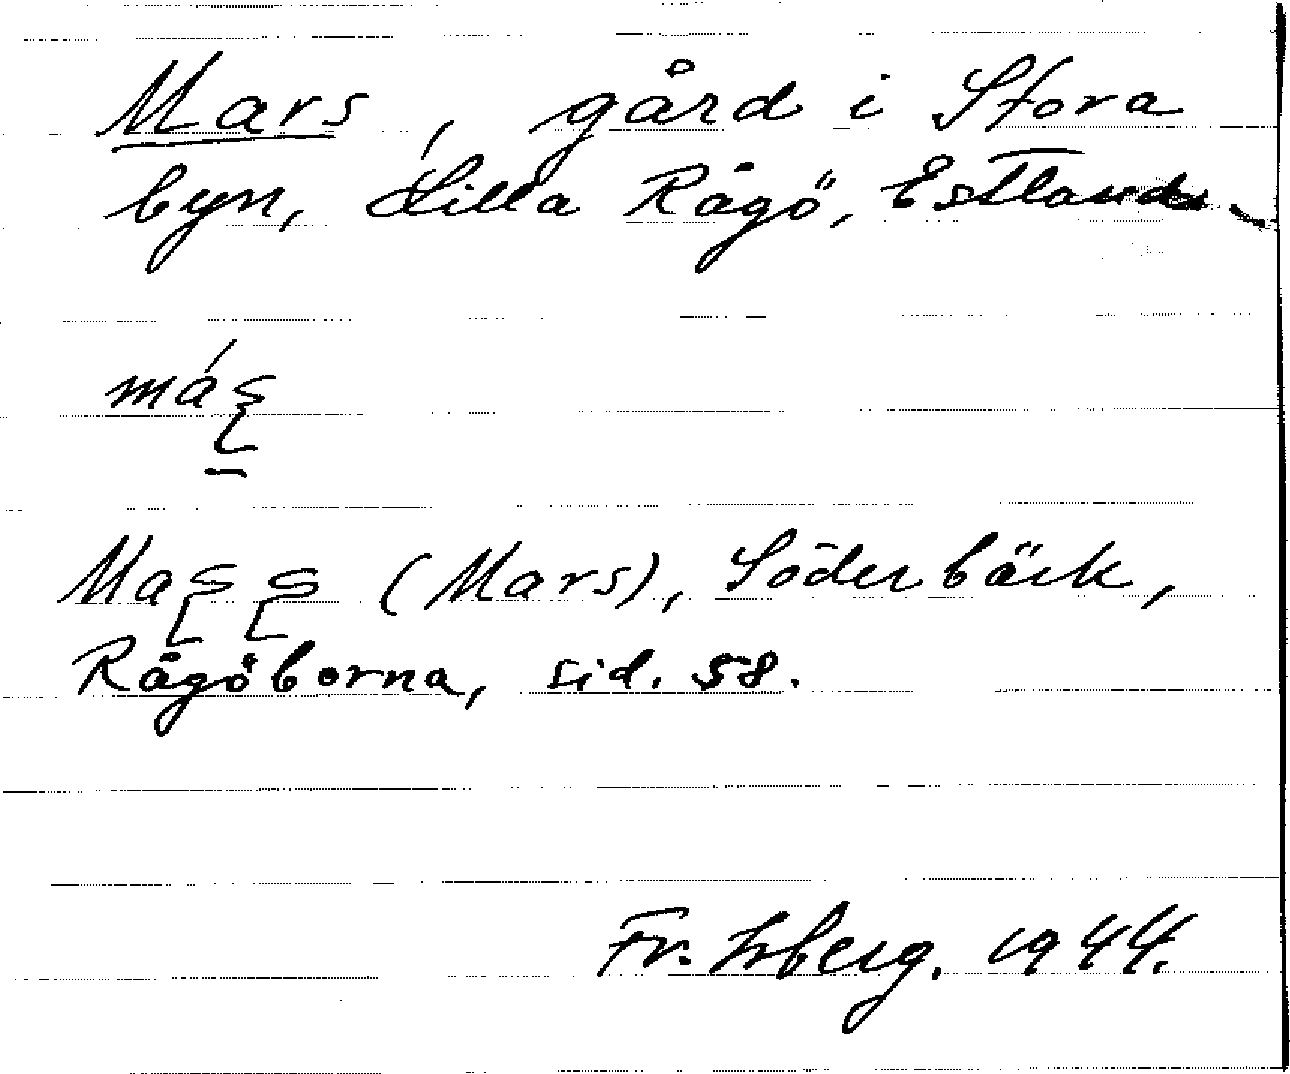 Mars, gård i Stora
byn, Lilla Rågö, Estland.
máʂ
Maʂʂ (Mars), Söderbäck,
Rågöborna, sid. 58.
Fr. Isberg. 1944.